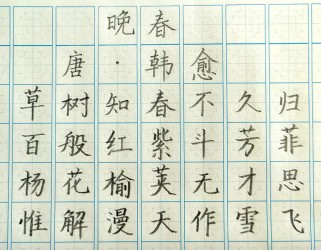 晚春
唐·韩愈
草树知春不久归
百般红紫斗芳菲
杨花榆荚无才思
惟解漫天作雪飞